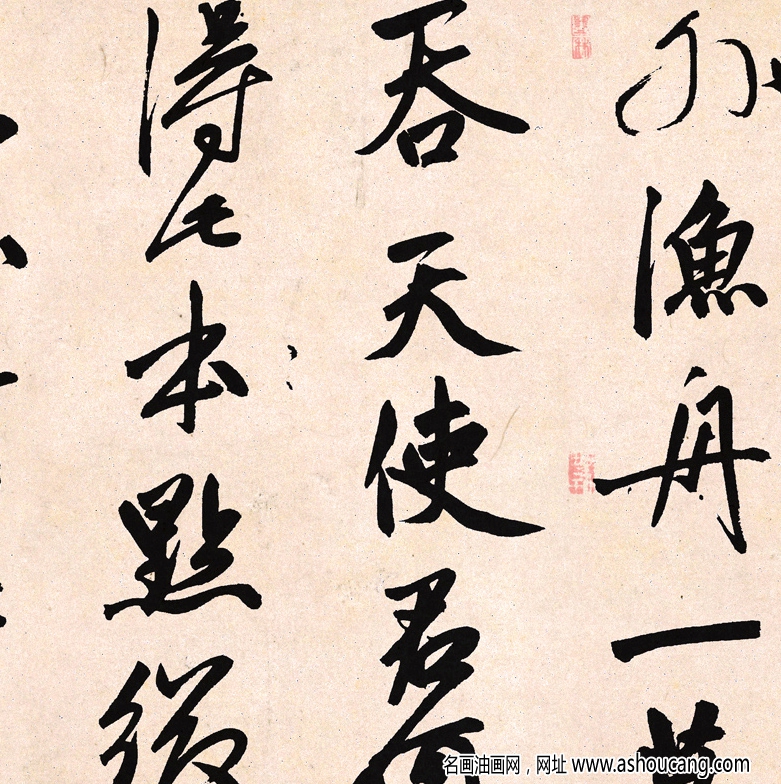 外漁舟一
吞天使君
得此本點綴
名画油画网，网址 www.ashoucang.com